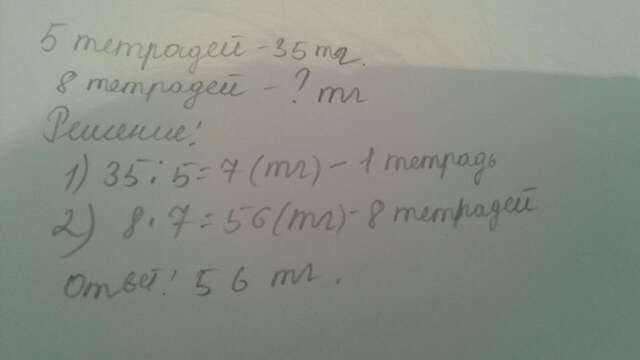 5 тетрадей - 35 тг.
8 тетрадей - ? тг
Решение:
1) 35 : 5 = 7 (тг) - 1 тетрадь
2) 8 · 7 = 56 (тг) - 8 тетрадей
Ответ: 56 тг.